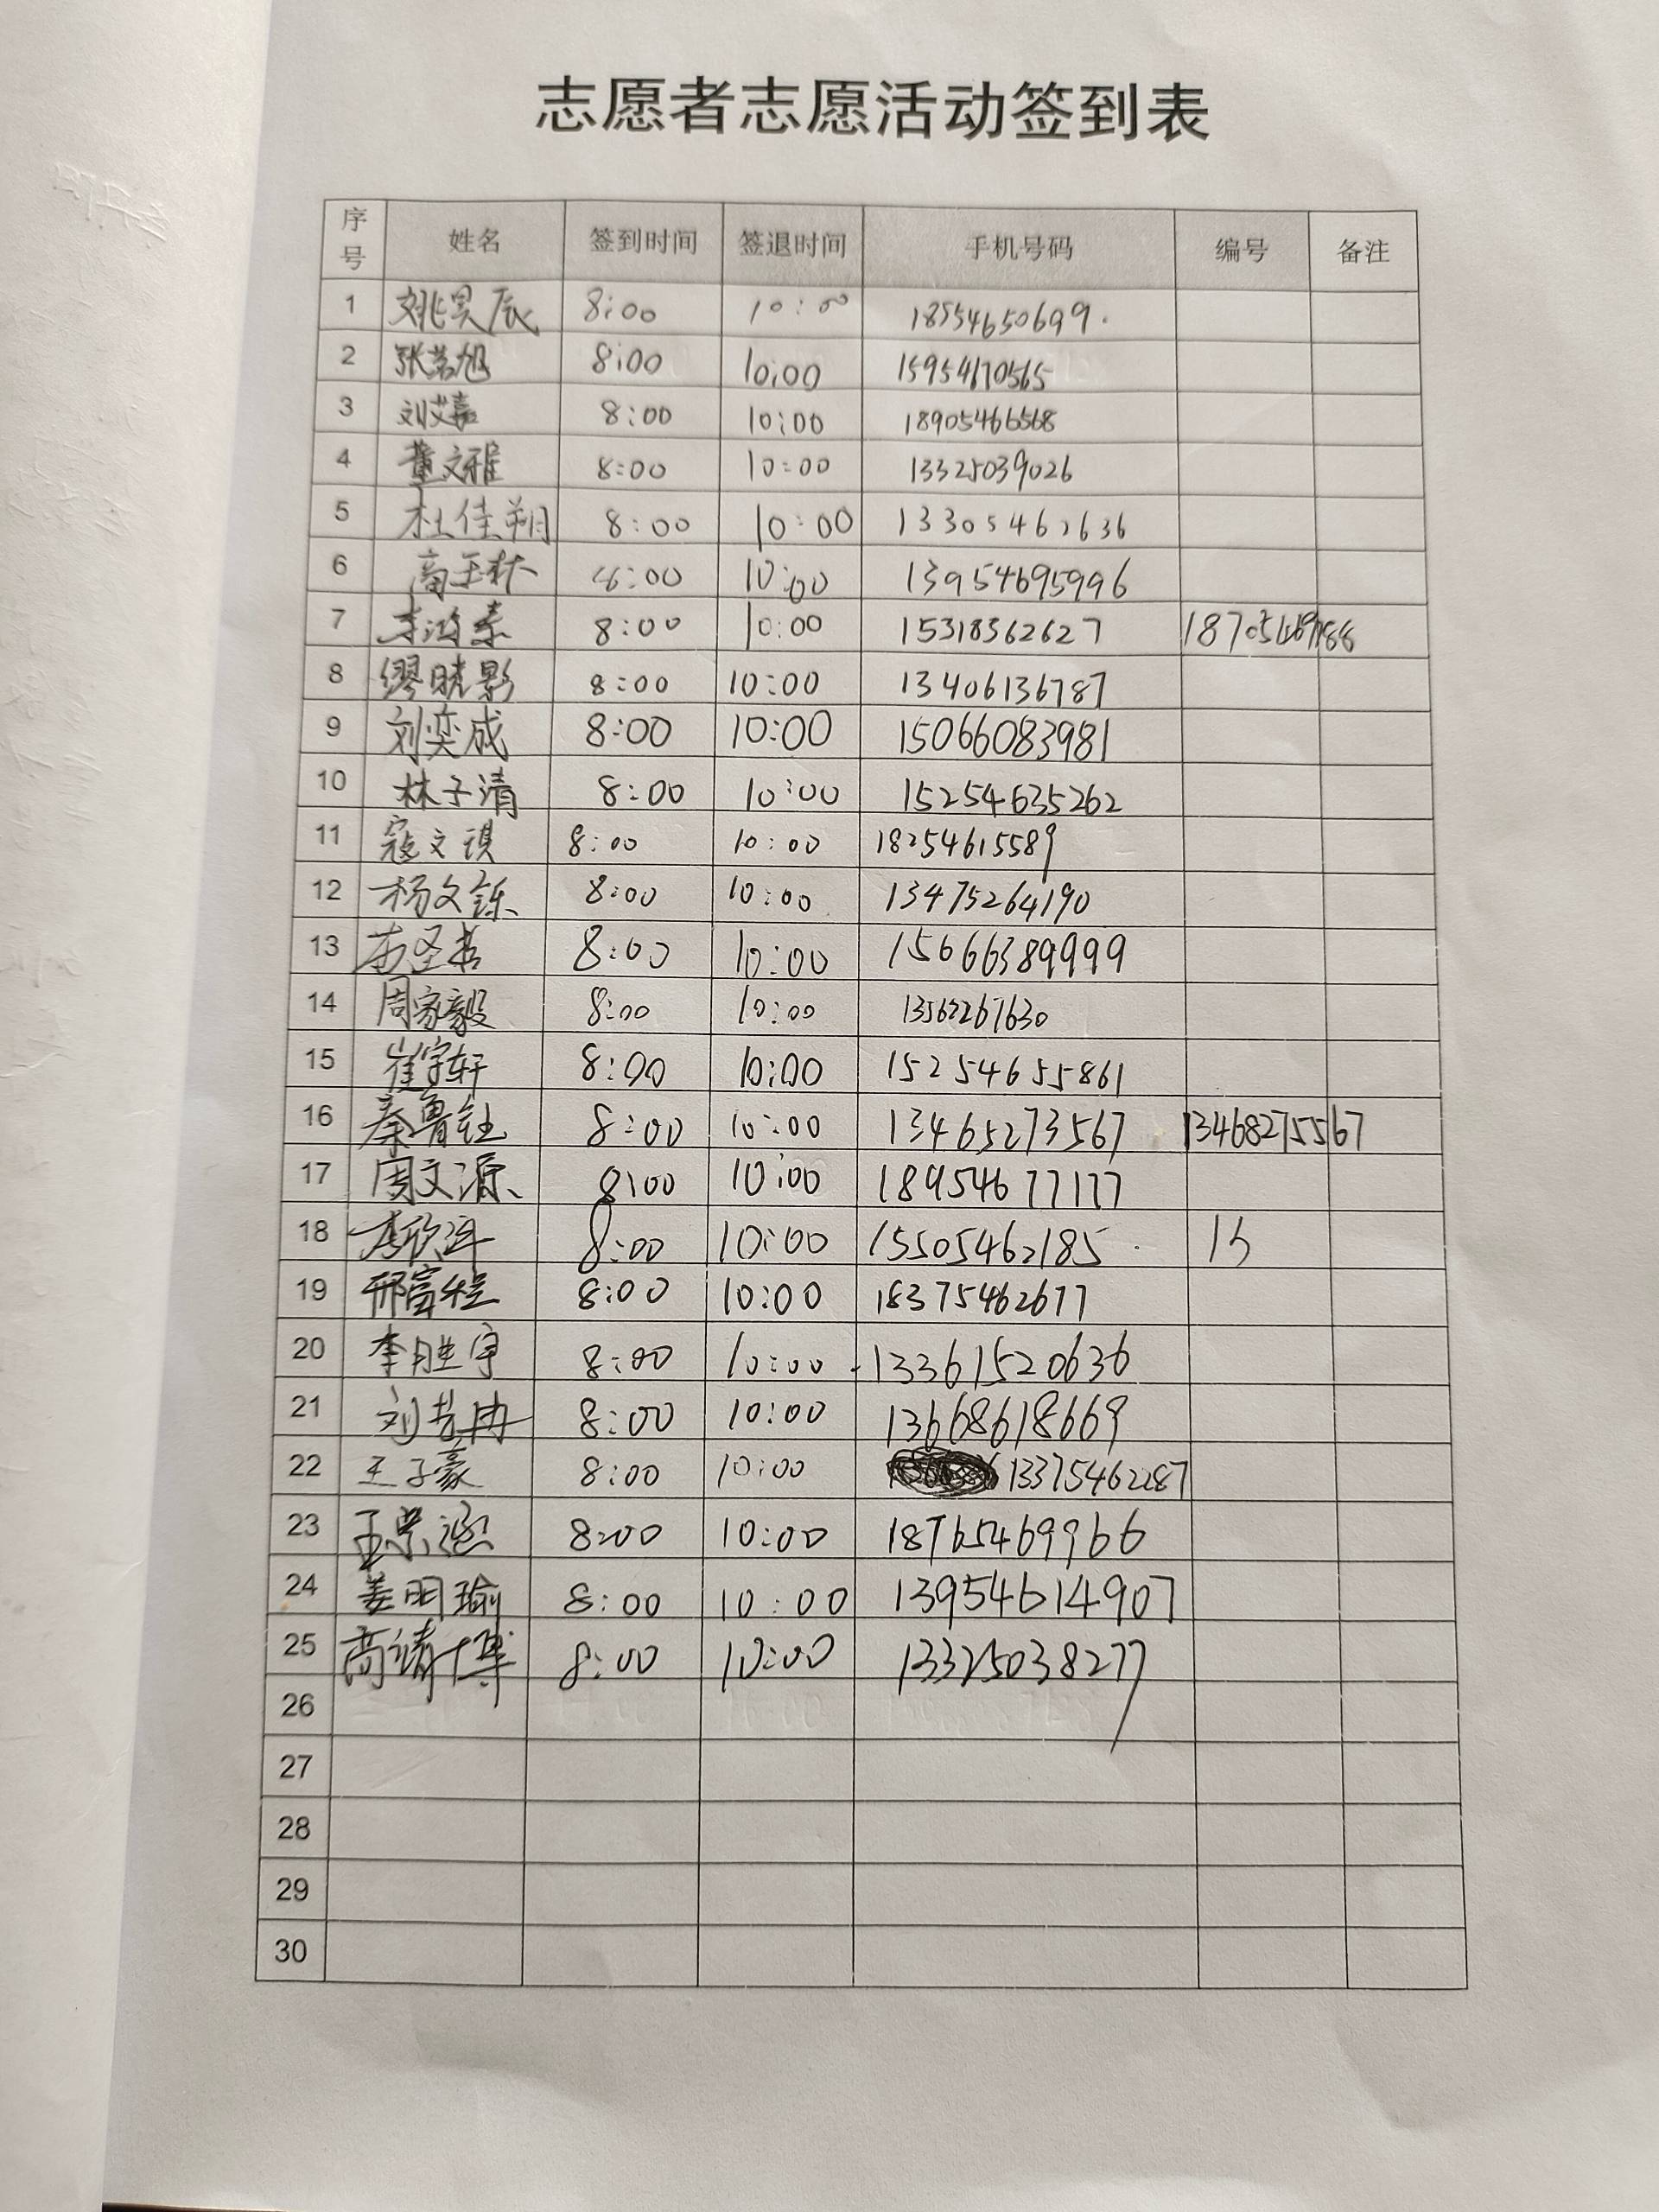 志愿者志愿活动签到表
序号 姓名 签到时间 签退时间 手机号码 编号 备注
1 姚昊辰 8:00 10:00 18554650699
2 张茗旭 8:00 10:00 15954170565
3 刘艾嘉 8:00 10:00 18905466568
4 董文雅 8:00 10:00 13325039026
5 杜佳朔 8:00 10:00 13305462636
6 高玉林 8:00 10:00 13954695996
7 李鸿泰 8:00 10:00 15318362627
8 缪晓影 8:00 10:00 13406136787
9 刘奕成 8:00 10:00 15066083981
10 林子清 8:00 10:00 15254635262
11 寇文琪 8:00 10:00 18254615589
12 杨文铄 8:00 10:00 13475264190
13 8:00 10:00 15666389999
14 周家毅 8:00 10:00 13562267630
15 崔宇轩 8:00 10:00 15254655861
16 秦鲁钰 8:00 10:00 13465273567 13468275567
17 周文源 8:00 10:00 18954677177
18 8:00 10:00 15505462185 15
19 邢富程 8:00 10:00 18375462677
20 李胜宇 8:00 10:00 13361520636
21 刘芸冉 8:00 10:00 13668618669
22 王子豪 8:00 10:00 13375462287
23 王崇涵 8:00 10:00 18765469966
24 姜明瑜 8:00 10:00 13954614907
25 高靖博 8:00 10:00 13325038277
26
27
28
29
30